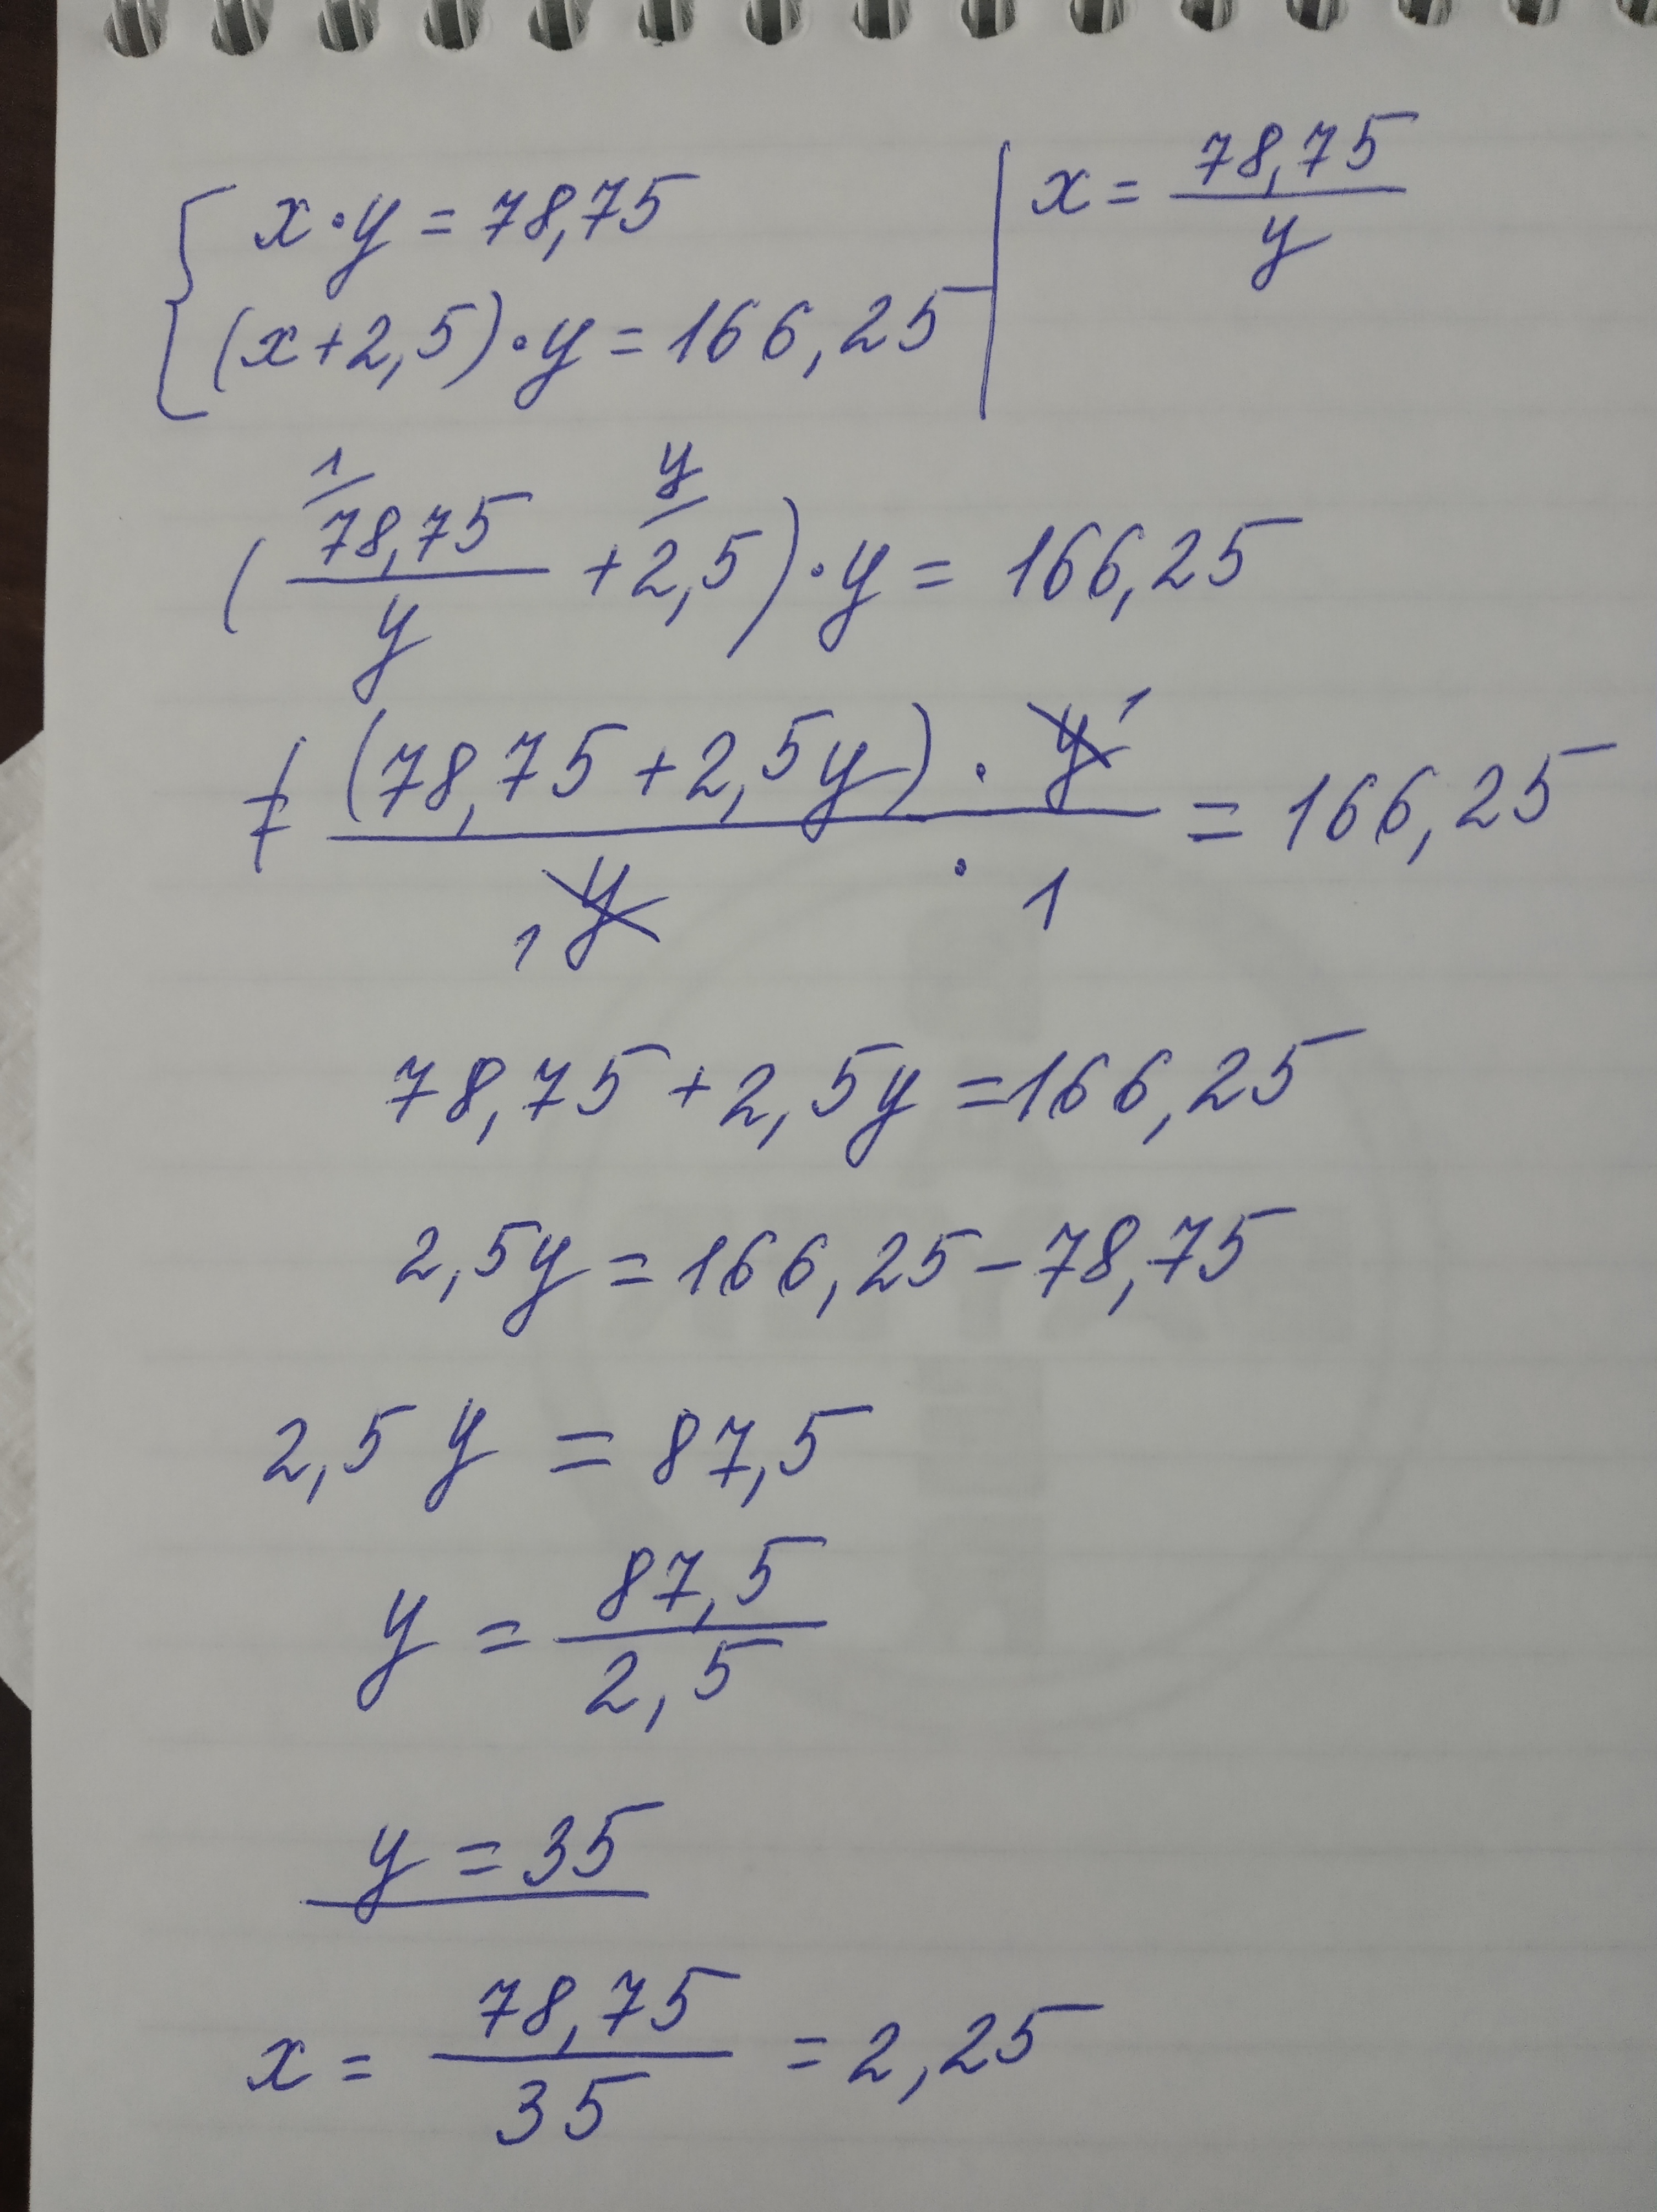 { x·y = 78,75 | x = 78,75 / y
(x+2,5)·y = 166,25
1 y
( 78,75 / y + 2,5 )·y = 166,25
(78,75 + 2,5y) · y 1 / 1 y · 1 = 166,25
78,75 + 2,5y = 166,25
2,5y = 166,25 – 78,75
2,5 y = 87,5
y = 87,5 / 2,5
y = 35
x = 78,75 / 35 = 2,25